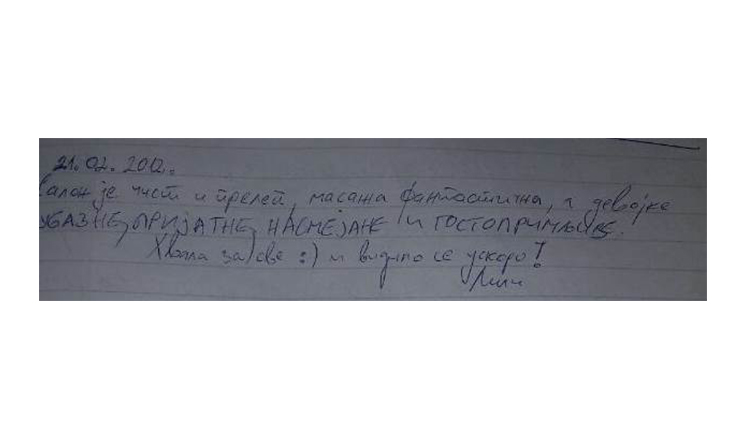 21.02.2012.
Салон је чист и прелеп, масажа фантастична, а девојке
УБАЗНЕ, ПРИЈАТНЕ, НАСМЕЈАНЕ и ГОСТОПРИМЉИВЕ.
Хвала за све :) и видимо се ускоро!
Лили